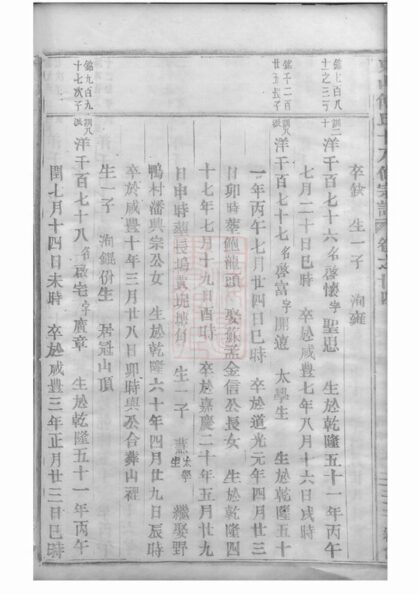 卒缺 生一子 洵雍
洋千百七十六 名啟懷 字聖思 生於乾隆五十一年丙午
七月二十日巳時 卒於咸豐七年八月十六日戌時
洋千百七十七 名啟富 字開遠 太學生 生於乾隆五十
一年丙午七月廿四日巳時 卒於道光元年四月廿三
日卯時 葬鮑龍頭 娶蘇孟金信公長女 生於乾隆四
十七年七月十九日酉時 卒於嘉慶二十年五月廿九
日申時 葬長塢黃坭塘 生一子 太學生 繼娶野
鴨村潘興宗公女 生於乾隆六十年四月廿九日辰時
卒於咸豐十年三月廿八日卯時與公合葬山裡
生一子 洵鋌 份生 葬冠山頂
洋千百七十八 名啟宅 字廣章 生於乾隆五十一年丙午
閏七月十四日未時 卒於咸豐三年正月廿三日巳時